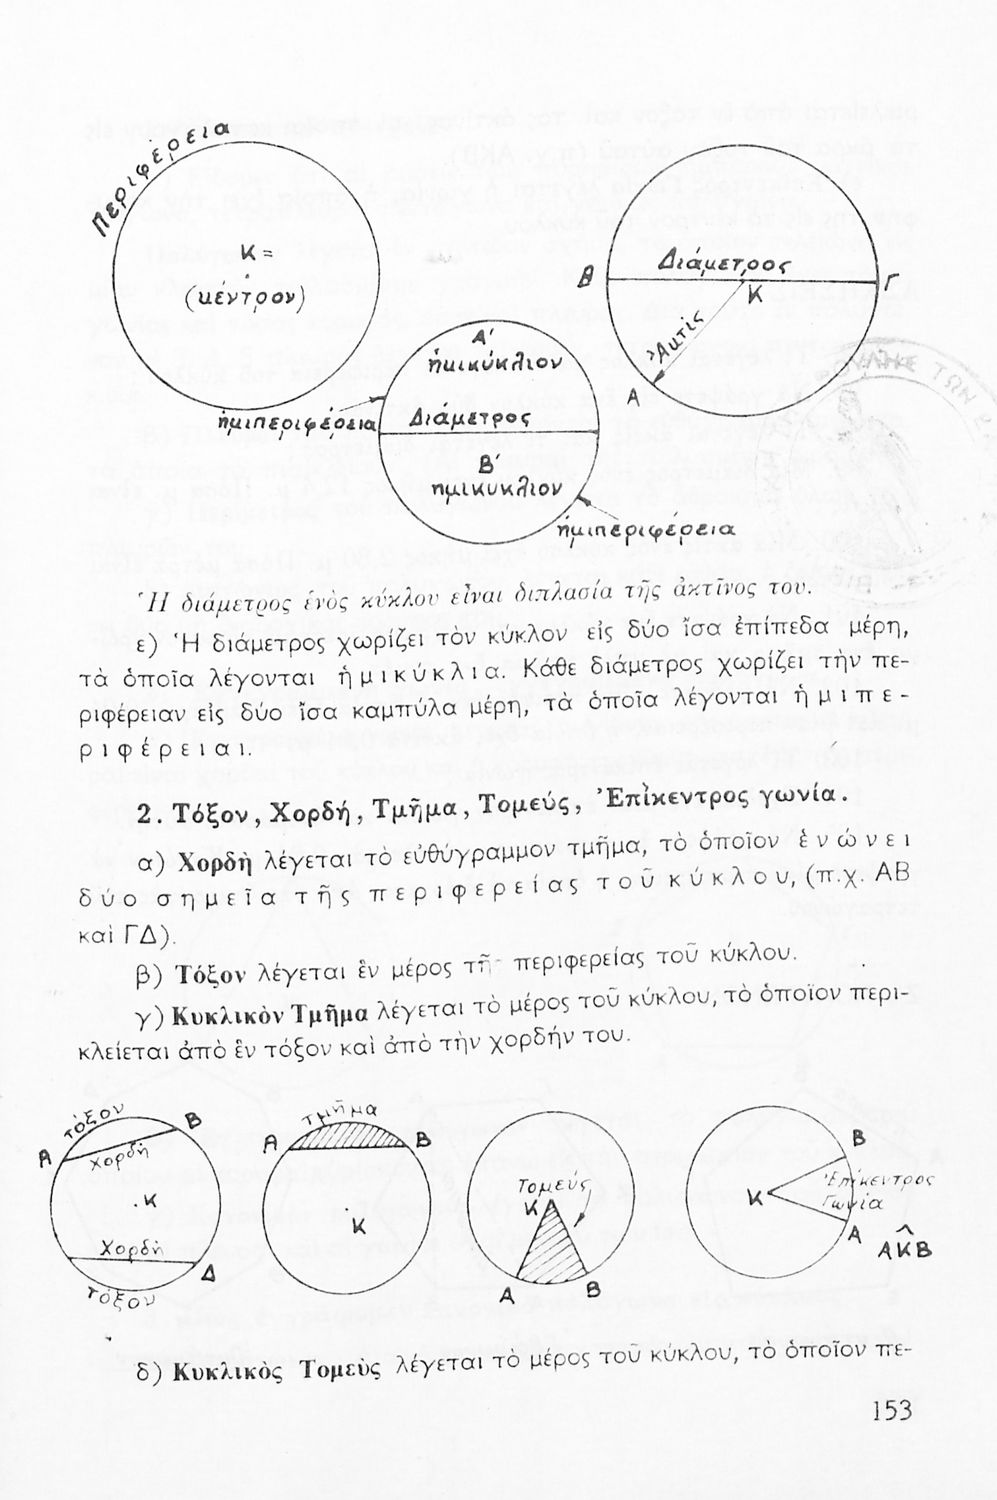 Περιφέρεια
Κ =
(κέντρον)
Διάμετρος
Β
Γ
Κ
Ἀκτίς
Α
Α΄
ἡμικύκλιον
ἡμιπεριφέρεια
Διάμετρος
Β΄
ημικυκλιον
ἡμιπεριφέρεια
Ἡ διάμετρος ἑνὸς κύκλου εἶναι διπλασία τῆς ἀκτῖνος του.
ε) Ἡ διάμετρος χωρίζει τὸν κύκλον εἰς δύο ἴσα ἐπίπεδα μέρη,
τὰ ὁποῖα λέγονται ἡμικύκλια. Κάθε διάμετρος χωρίζει τὴν πε-
ριφέρειαν εἰς δύο ἴσα καμπύλα μέρη, τὰ ὁποῖα λέγονται ἡμιπε-
ριφέρειαι.
2. Τόξον, Χορδή, Τμῆμα, Τομεύς, Ἐπίκεντρος γωνία.
α) Χορδὴ λέγεται τὸ εὐθύγραμμον τμῆμα, τὸ ὁποῖον ἑνώνει
δύο σημεῖα τῆς περιφερείας τοῦ κύκλου, (π.χ. ΑΒ
καὶ ΓΔ).
β) Τόξον λέγεται ἓν μέρος τῆς περιφερείας τοῦ κύκλου.
γ) Κυκλικὸν Τμῆμα λέγεται τὸ μέρος τοῦ κύκλου, τὸ ὁποῖον περι-
κλείεται ἀπὸ ἓν τόξον καὶ ἀπὸ τὴν χορδήν του.
τόξον
Α
Β
χορδή
Κ
Χορδή
Δ
τόξον
τμῆμα
Α
Β
Κ
Τομεύς
Κ
Α
Β
Β
Ἐπίκεντρος
Κ
Γωνία
Α
ΑΚ̂Β
δ) Κυκλικὸς Τομεὺς λέγεται τὸ μέρος τοῦ κύκλου, τὸ ὁποῖον πε-
153